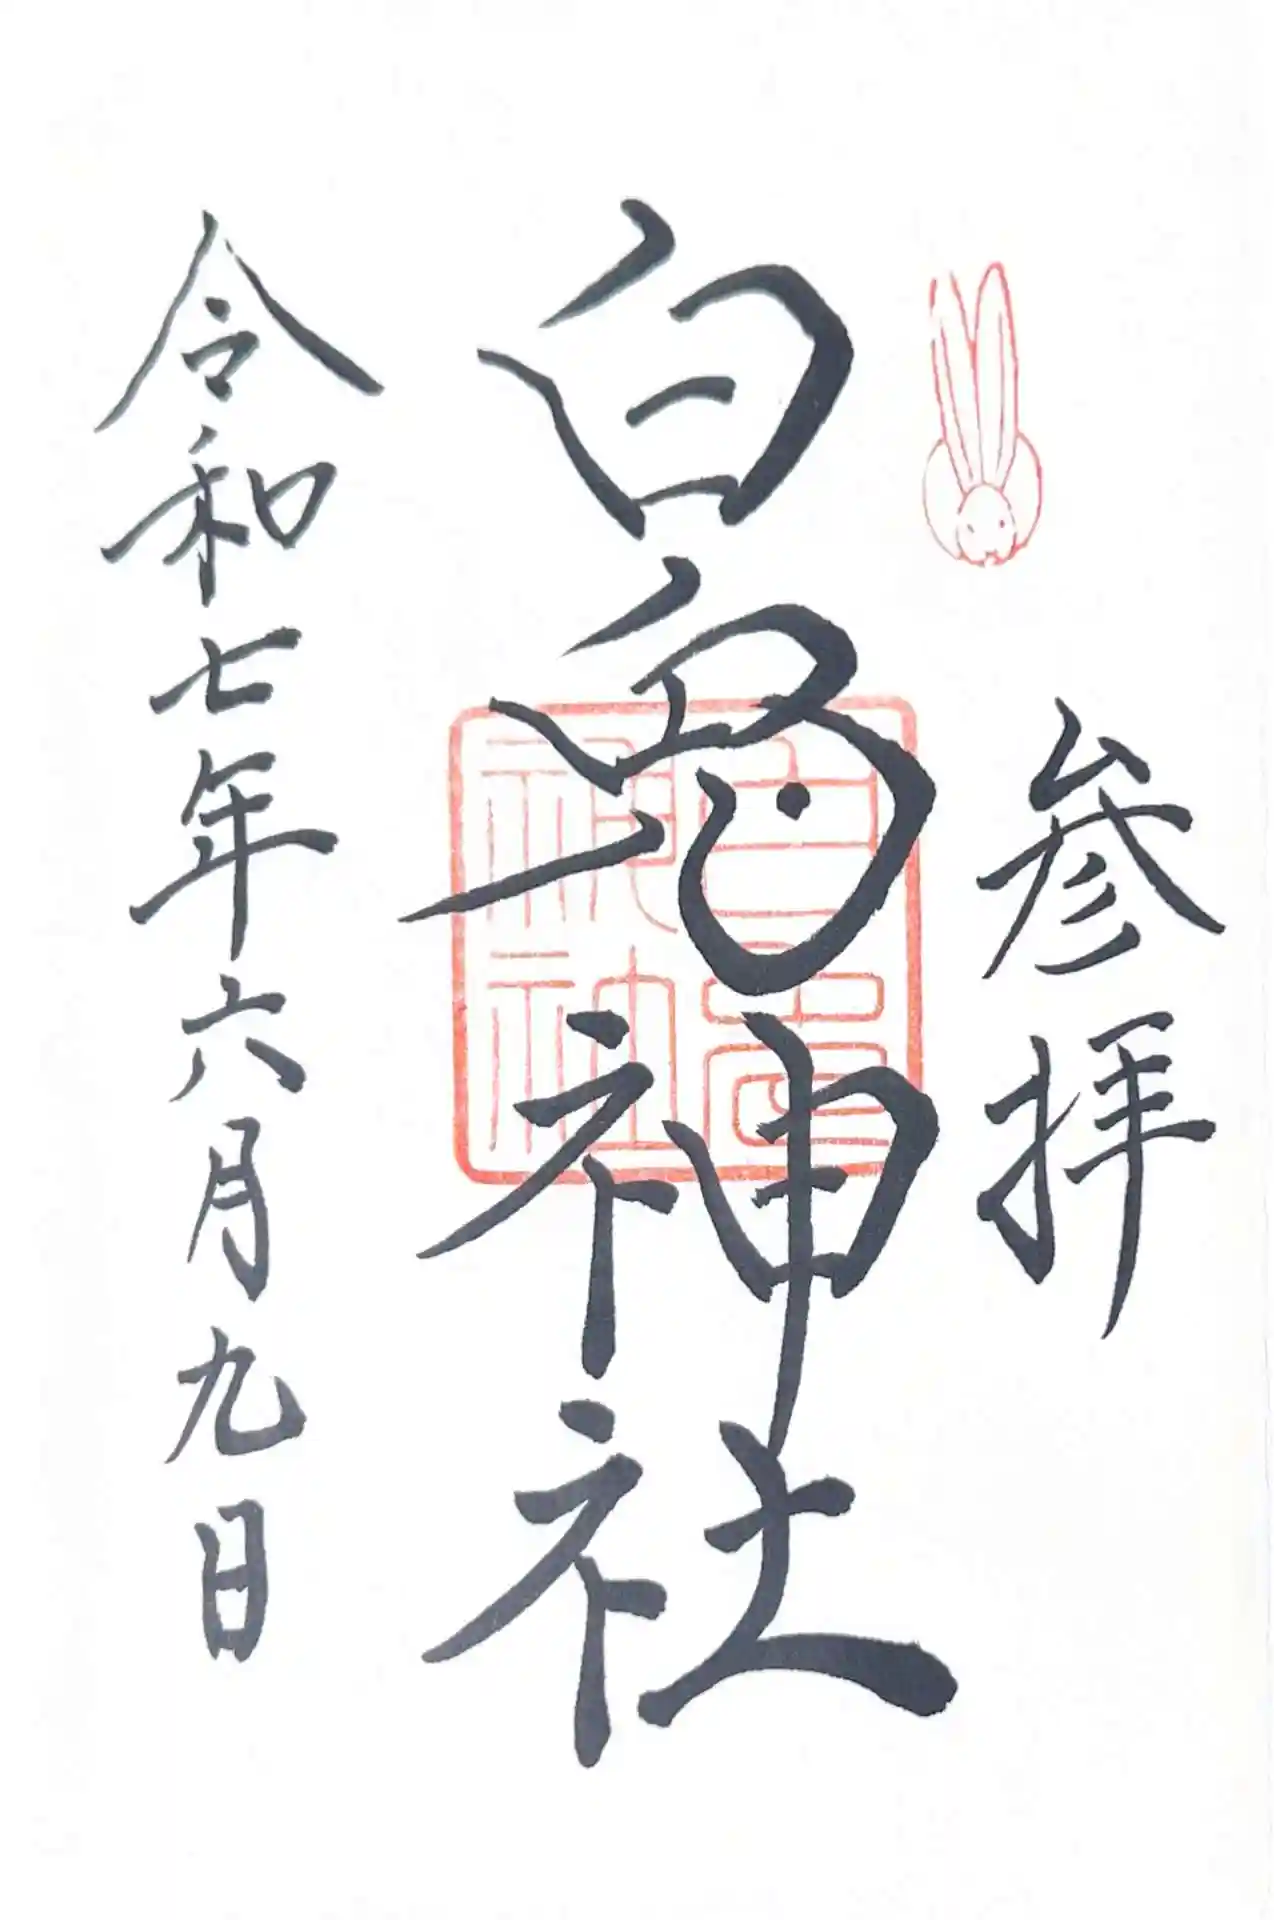 参拝
白兎神社
白兎
神社
令和七年六月九日